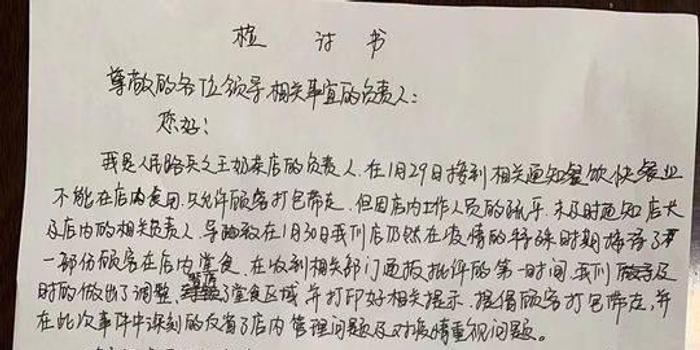 检讨书
尊敬的各位领导相关事宜的负责人:
您好:
我是人民路兵之王奶茶店的负责人,在1月29日接到相关通知餐饮快餐业
不能在店内食用.只允许顾客打包带走.但因店内工作人员的疏乎.未及时通知店长
及店内的相关负责人.导致在1月30日我们店仍然在疫情的特殊时期接待了
一部份顾客在店内堂食.在收到相关部门通报批评的第一时间.我们及
时的做出了调整,了堂食区域 并打印好相关提示.提倡顾客打包带走,并
在此次事件中深刻的反省了店内 管理问题及对疫情重视问题。